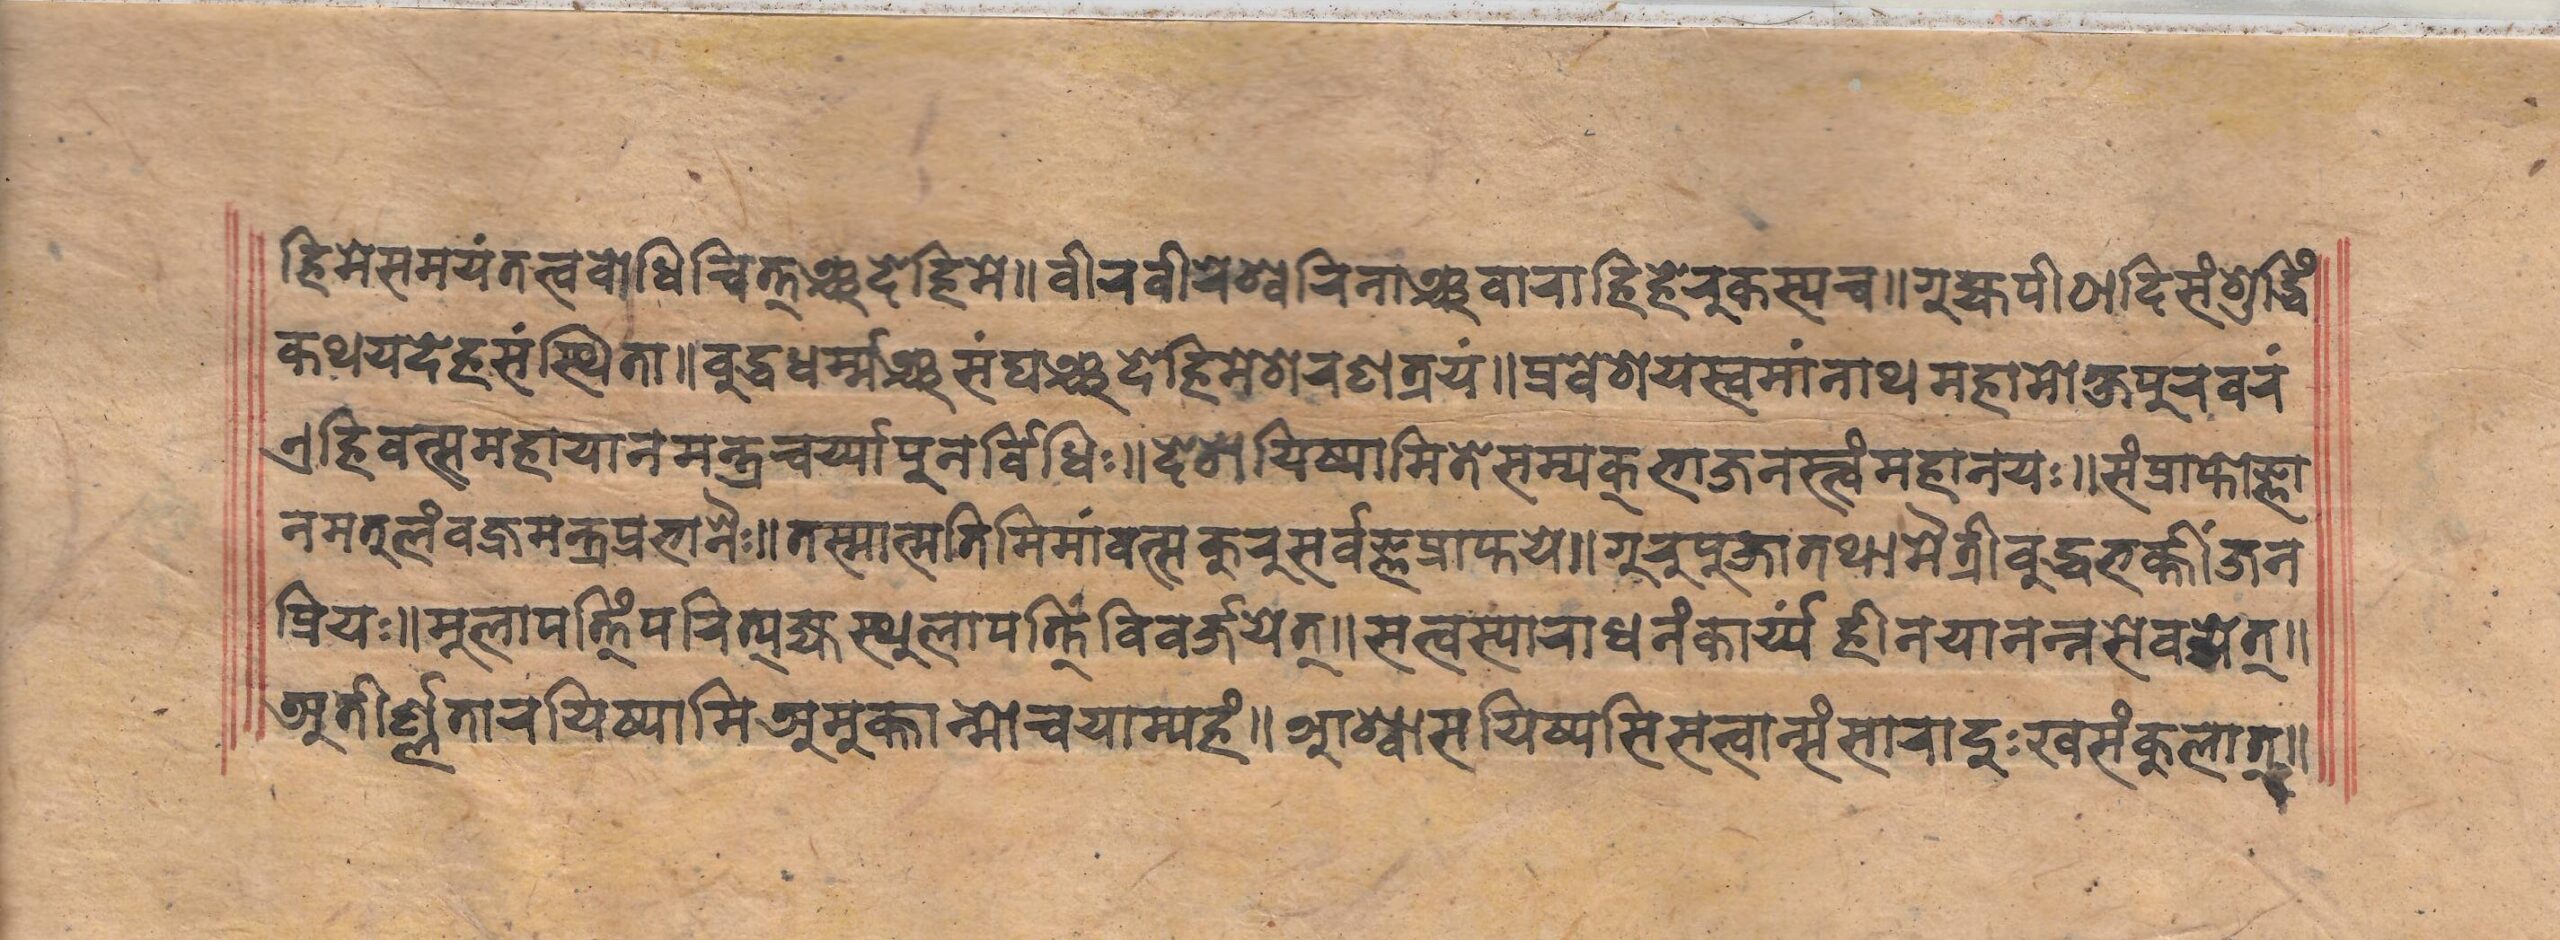 हि मे समयं तत्व वोधिचित्तञ्च देहि मे॥ वीरवीरेश्वरिनाञ्च वाराहिहेरुकस्य च॥ गुह्यपीठादिसंशुद्धिं
कथय देहसंस्थिता॥ वुद्धधर्म्मञ्च संघञ्च देहि मे शरणत्रयं॥ प्रवेशयस्व मां नाथ महामोक्षपुरवरं
एहि वत्स महायानमन्त्रचर्य्या पुनर्विधिः॥ देशयिष्यामि ते सम्यक् भाजनस्त्वं महानयः॥ संप्राप्तोज्ञा
नमतुलं वज्रमन्त्रप्रभानैः॥ तस्मात्मतिमिमां वत्स कुरु सर्वज्ञप्राप्तये॥ गुरुपूजा तथा मैत्री वुद्धभक्तीं जन
प्रियः॥ मूलापत्तिं परित्यज्य स्थुलापत्तिं विवर्जयेत्॥ सत्वस्याराधनं कार्य्यं हीनयानन्न सेवयेत्॥
अतीर्ण्ण तारयिष्यामि अमुक्तान्मोचयाम्यहं॥ आश्वासयिष्यसि सत्वान्संसारादुःखसंकुलात्॥